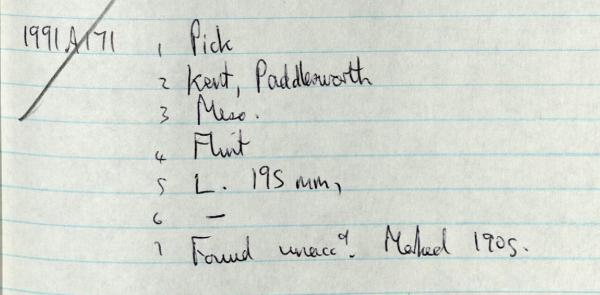 1991 A 171 1 Pick
2 Kent, Paddlesworth
3 Meso.
4 Flint
5 L. 195 mm,
6 —
7 Found unacc<sup>d</sup>. Marked 1905.